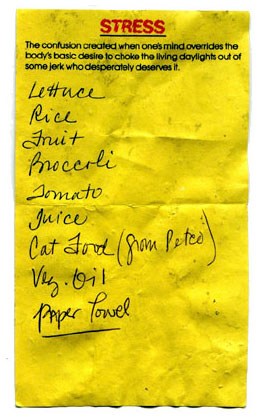 STRESS
The confusion created when one's mind overrides the
body's basic desire to choke the living daylights out of
some jerk who desperately deserves it.
Lettuce
Rice
Fruit
Broccoli
Tomato
Juice
Cat Food (from Petco)
Veg. Oil
Paper Towel